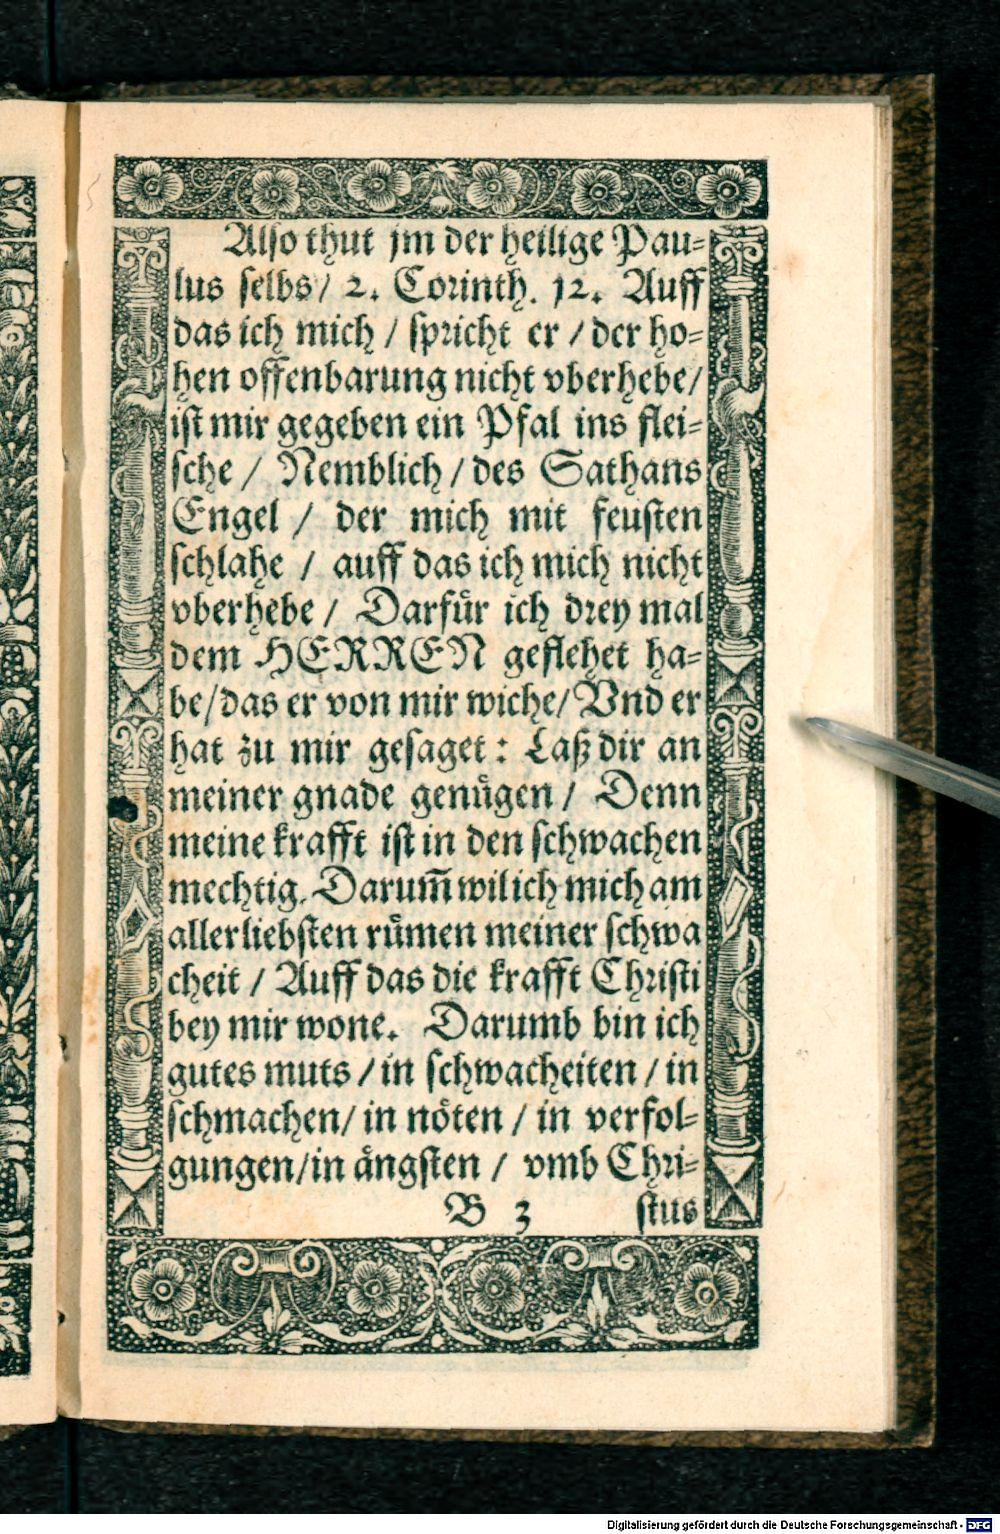 Also thut jm der heilige Pau-
lus selbs/ 2. Corinth. 12. Auff
das ich mich / spricht er / der ho-
hen offenbarung nicht vberhebe/
ist mir gegeben ein Pfal ins flei-
sche / Nemblich / des Sathans
Engel / der mich mit feusten
schlahe / auff das ich mich nicht
vberhebe / Darfuͤr ich drey mal
dem HERREN geflehet ha-
be/das er von mir wiche/ Vnd er
hat zu mir gesaget : Laß dir an
meiner gnade genuͤgen / Denn
meine krafft ist in den schwachen
mechtig. Darum̃ wil ich mich am
allerliebsten ruͤmen meiner schwa
cheit / Auff das die krafft Christi
bey mir wone. Darumb bin ich
gutes muts / in schwacheiten / in
schmachen/ in noͤten / in verfol-
gungen/in aͤngsten / vmb Chri-
B 3 stus
Digitalisierung gefördert durch die Deutsche Forschungsgemeinschaft - DFG